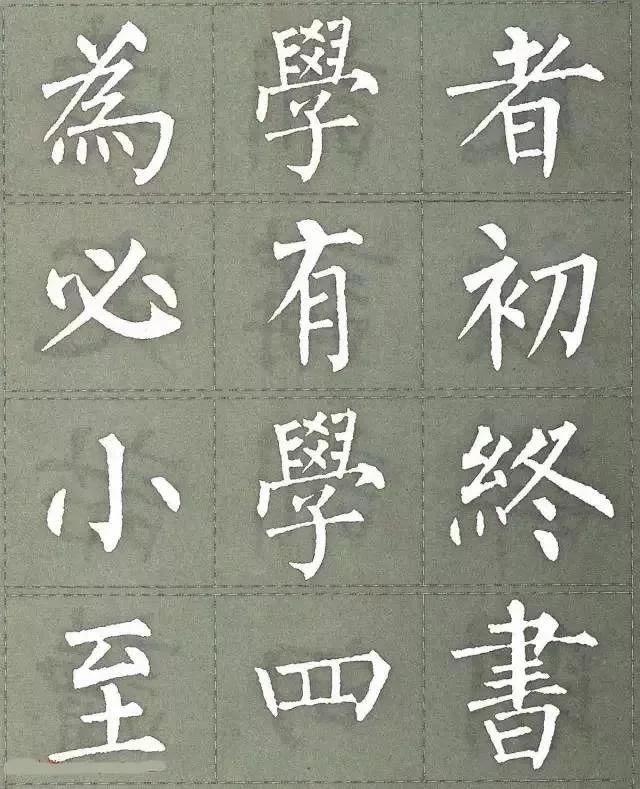 為學者
必有初
小學終
至四書